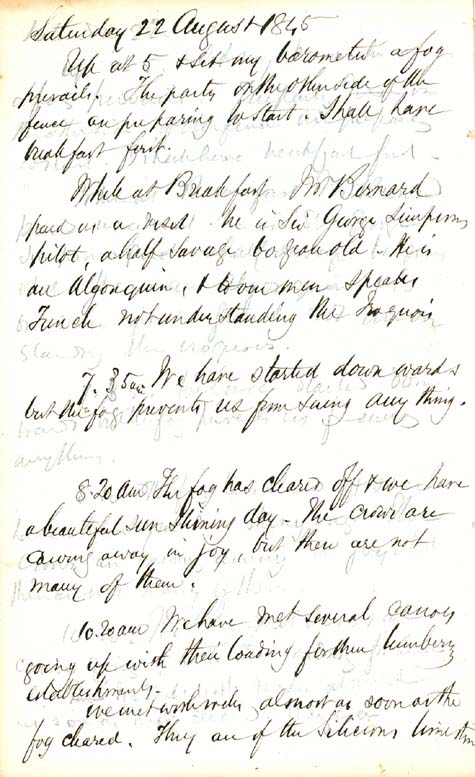 Saturday 22 August 1845
Up at 5 & set my barometer a fog
prevails. The party on the other side of the
fence are preparing to start. I shall have
breakfast first.
While at Breakfast Mr Bernard
paid us a visit he is Sir George Simpsons
pilot, a half savage 60 years old. He is
an Algonquin, & to our men speaks
French not understanding the Iroquois
7.35am We have started downwards
but the fog prevents us from seing any thing.
8.20am The fog has cleared off & we have
a beautiful sun shining day. The crows are
cawing away in joy but there are not
many of them.
10.20am We have met several canoes
going up with their loading for their lumbering
establishments.
we met with rocks almost as soon as the
fog cleared. They are of the Silicious limestone